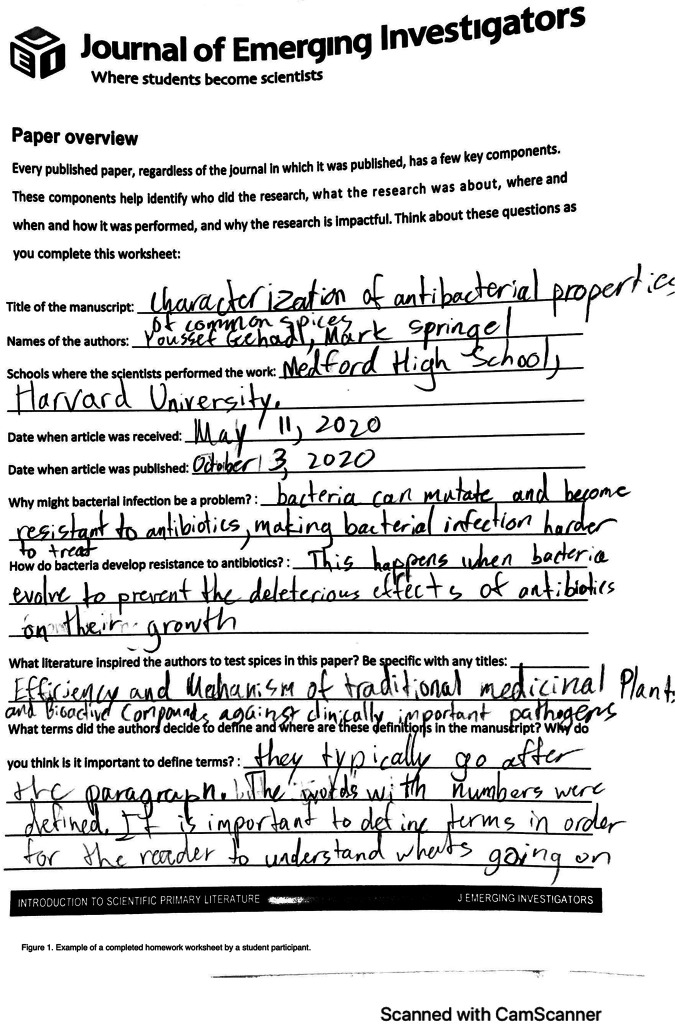 JEI
Journal of Emerging Investigators
Where students become scientists
Paper overview
Every published paper, regardless of the journal in which it was published, has a few key components.
These components help identify who did the research, what the research was about, where and
when and how it was performed, and why the research is impactful. Think about these questions as
you complete this worksheet:
Title of the manuscript: Characterization of antibacterial properties
of common spices
Names of the authors: Youssef Gehad, Mark Springel
Schools where the scientists performed the work: Medford High School,
Harvard University.
Date when article was received: May 11, 2020
Date when article was published: October 3, 2020
Why might bacterial infection be a problem? : bacteria can mutate and become
resistant to antibiotics, making bacterial infection harder
to treat
How do bacteria develop resistance to antibiotics? : This happens when bacteria
evolve to prevent the deleterious effects of antibiotics
on their growth
What literature inspired the authors to test spices in this paper? Be specific with any titles:
Efficiency and Mehanism of traditional medicinal Plants
and Bioactive Compounds against clinically important pathogens
What terms did the authors decide to define and where are these definitions in the manuscript? Why do
you think is it important to define terms? : they typically go after
the paragraph. The words with numbers were
defined. It is important to define terms in order
for the reader to understand whats going on
INTRODUCTION TO SCIENTIFIC PRIMARY LITERATURE J EMERGING INVESTIGATORS
Figure 1. Example of a completed homework worksheet by a student participant.
Scanned with CamScanner